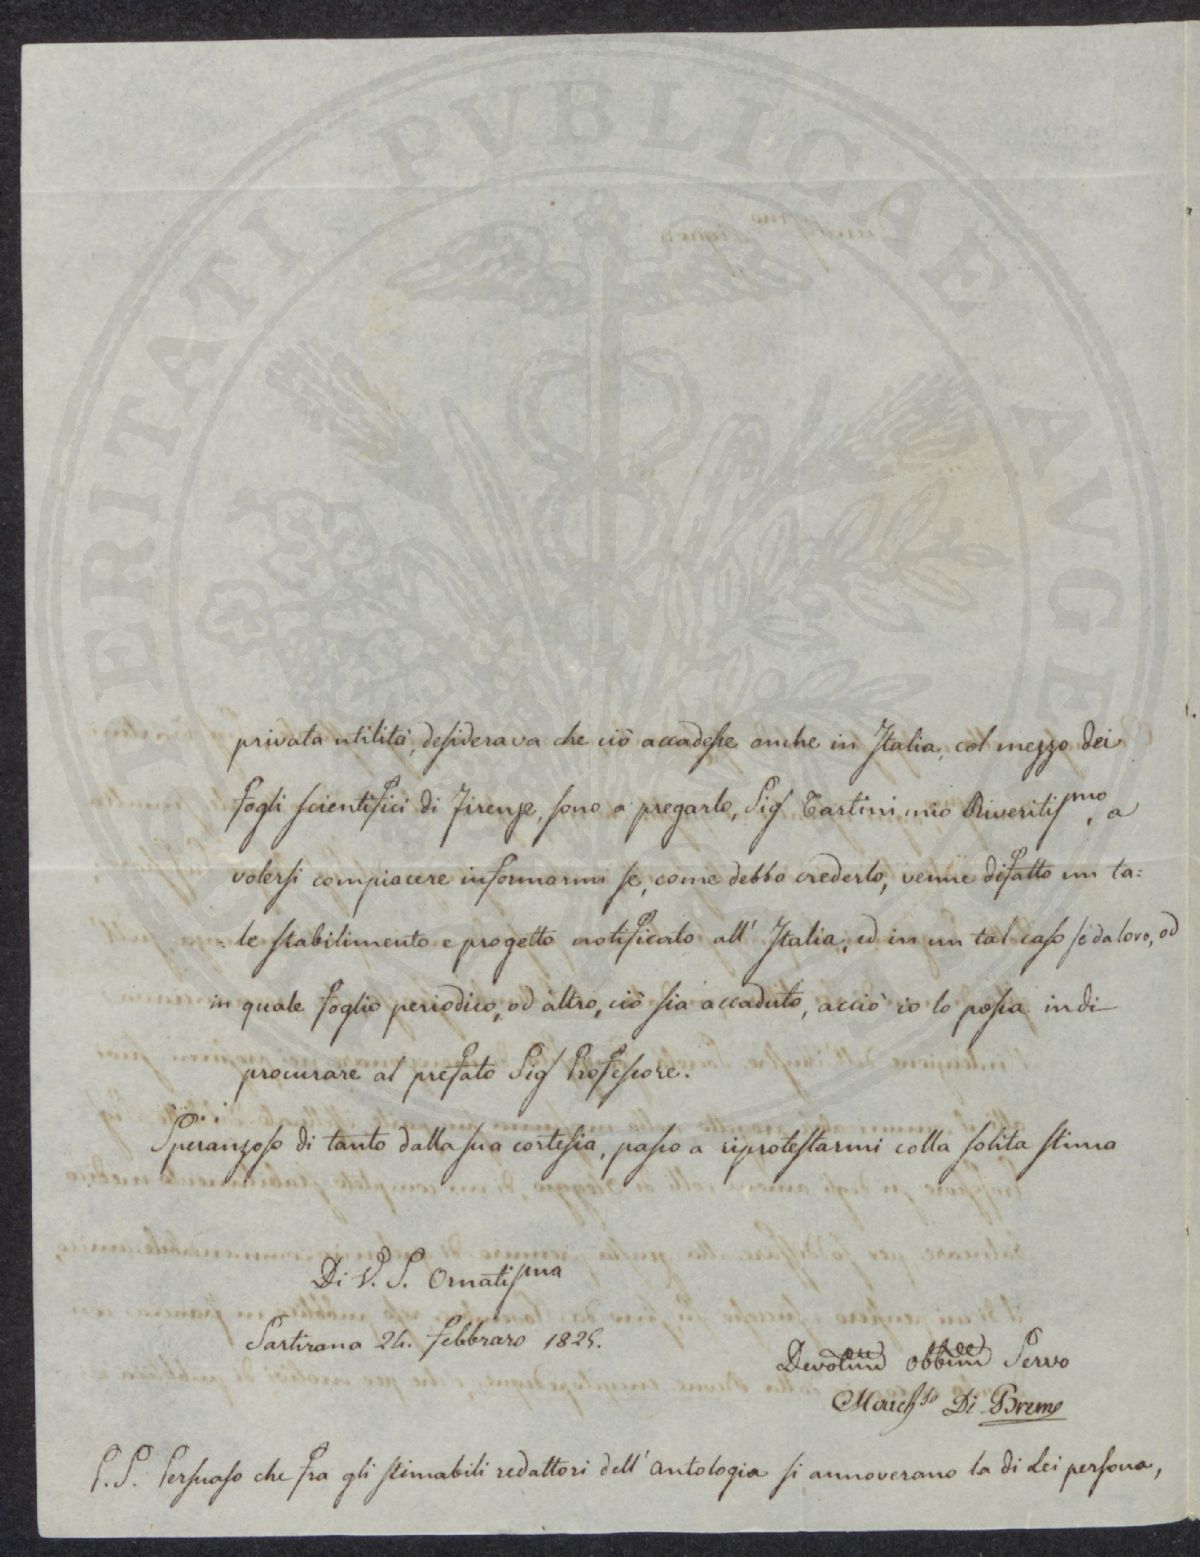 PVBLICAE
ERITATI
AVGE
privata utilità, desiderava che ciò accadesse anche in Italia, col mezzo dei
fogli scientifici di Firenze, sono a pregarlo, Sig Tartini mio Riveritismo, a
volersi compiacere informarmi se, come debbo crederlo, venne difatto un ta=
=le stabilimento e progetto notificato all' Italia, ed in un tal caso se da loro, od
in quale foglio periodico, od altro, ciò sia accaduto, acciò io lo possa indi
procurare al prefato Sig Professore.
Speranzoso di tanto dalla sua cortesia, passo a riprotestarmi colla solita stima
Di V. S. Ornatisma
Sartirana 24. Febbraro 1825.
Devotmo obbmo Servo
March.se Di Breme
P. S. Persuaso che fra gli stimabili redattori dell' Antologia si annoverano la di Lei persona,